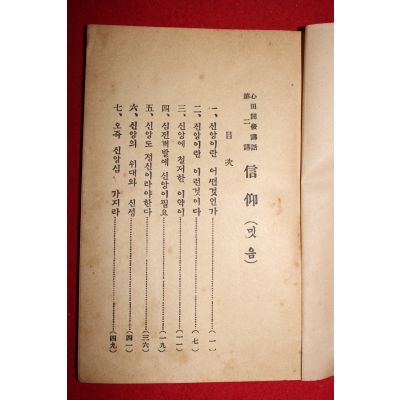 心田開發講話
第二講
信仰(밋음)
目次
一、신앙이란 어떤것인가………(一)
二、신앙이란 이런것이다………(七)
三、신앙에 철저한 이약이………(一一)
四、심전개발에 신앙이필요………(一九)
五、신앙도 정신이라야한다………(三六)
六、신앙의 위대와 신성………(四一)
七、오즉 신앙심 가지라………(四九)